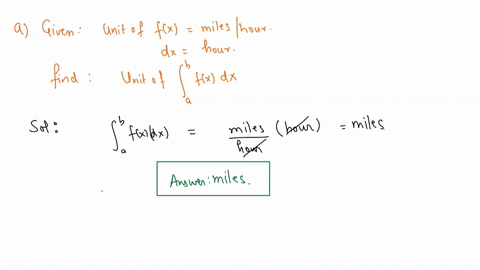 a) Given: Unit of f(x) = miles/hour.
dx = hour.
find: Unit of ∫_a^b f(x) dx
Sol: ∫_a^b f(x)(dx) = miles/hour (hour) = miles
Answer: miles.